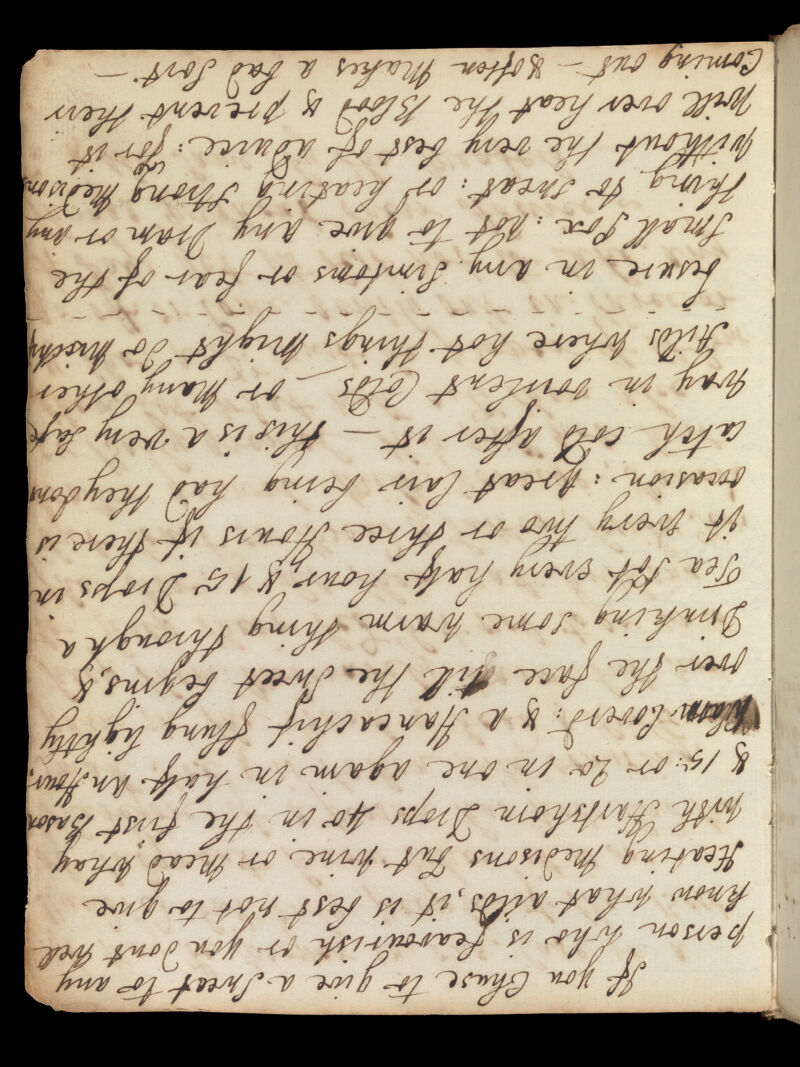 If you Chuse to give a Sweet to any
person who is feavourish or you dont well
know what aild, it is best not to give
Heating Medisons but wine or Mead Whay
with Hartshorn Drops 40 in the first Bason
& 15: or 20 in one again in half an Hour.
Warm Coverd: & a Hancachif flung lightly
over the face till the Sweet begins, &
Drinking some warm thing through a
Tea Pot every half hour & 15 Drops in
it every two or three Hours if there is
occasion: great Care being had they dont
catch cold after it — this is a very safe
way in voilent Colds — or Many other
Ailds where hot things might do Mischif
besure in any Simtoms or fear of the
Small Pox: not to give any Dram or any
thing to Sweat: or heating Strong Medisons
without the very best of advice: for it
will over heat the Blood & prevent their
Coming out — & often Makes a bad Sort —